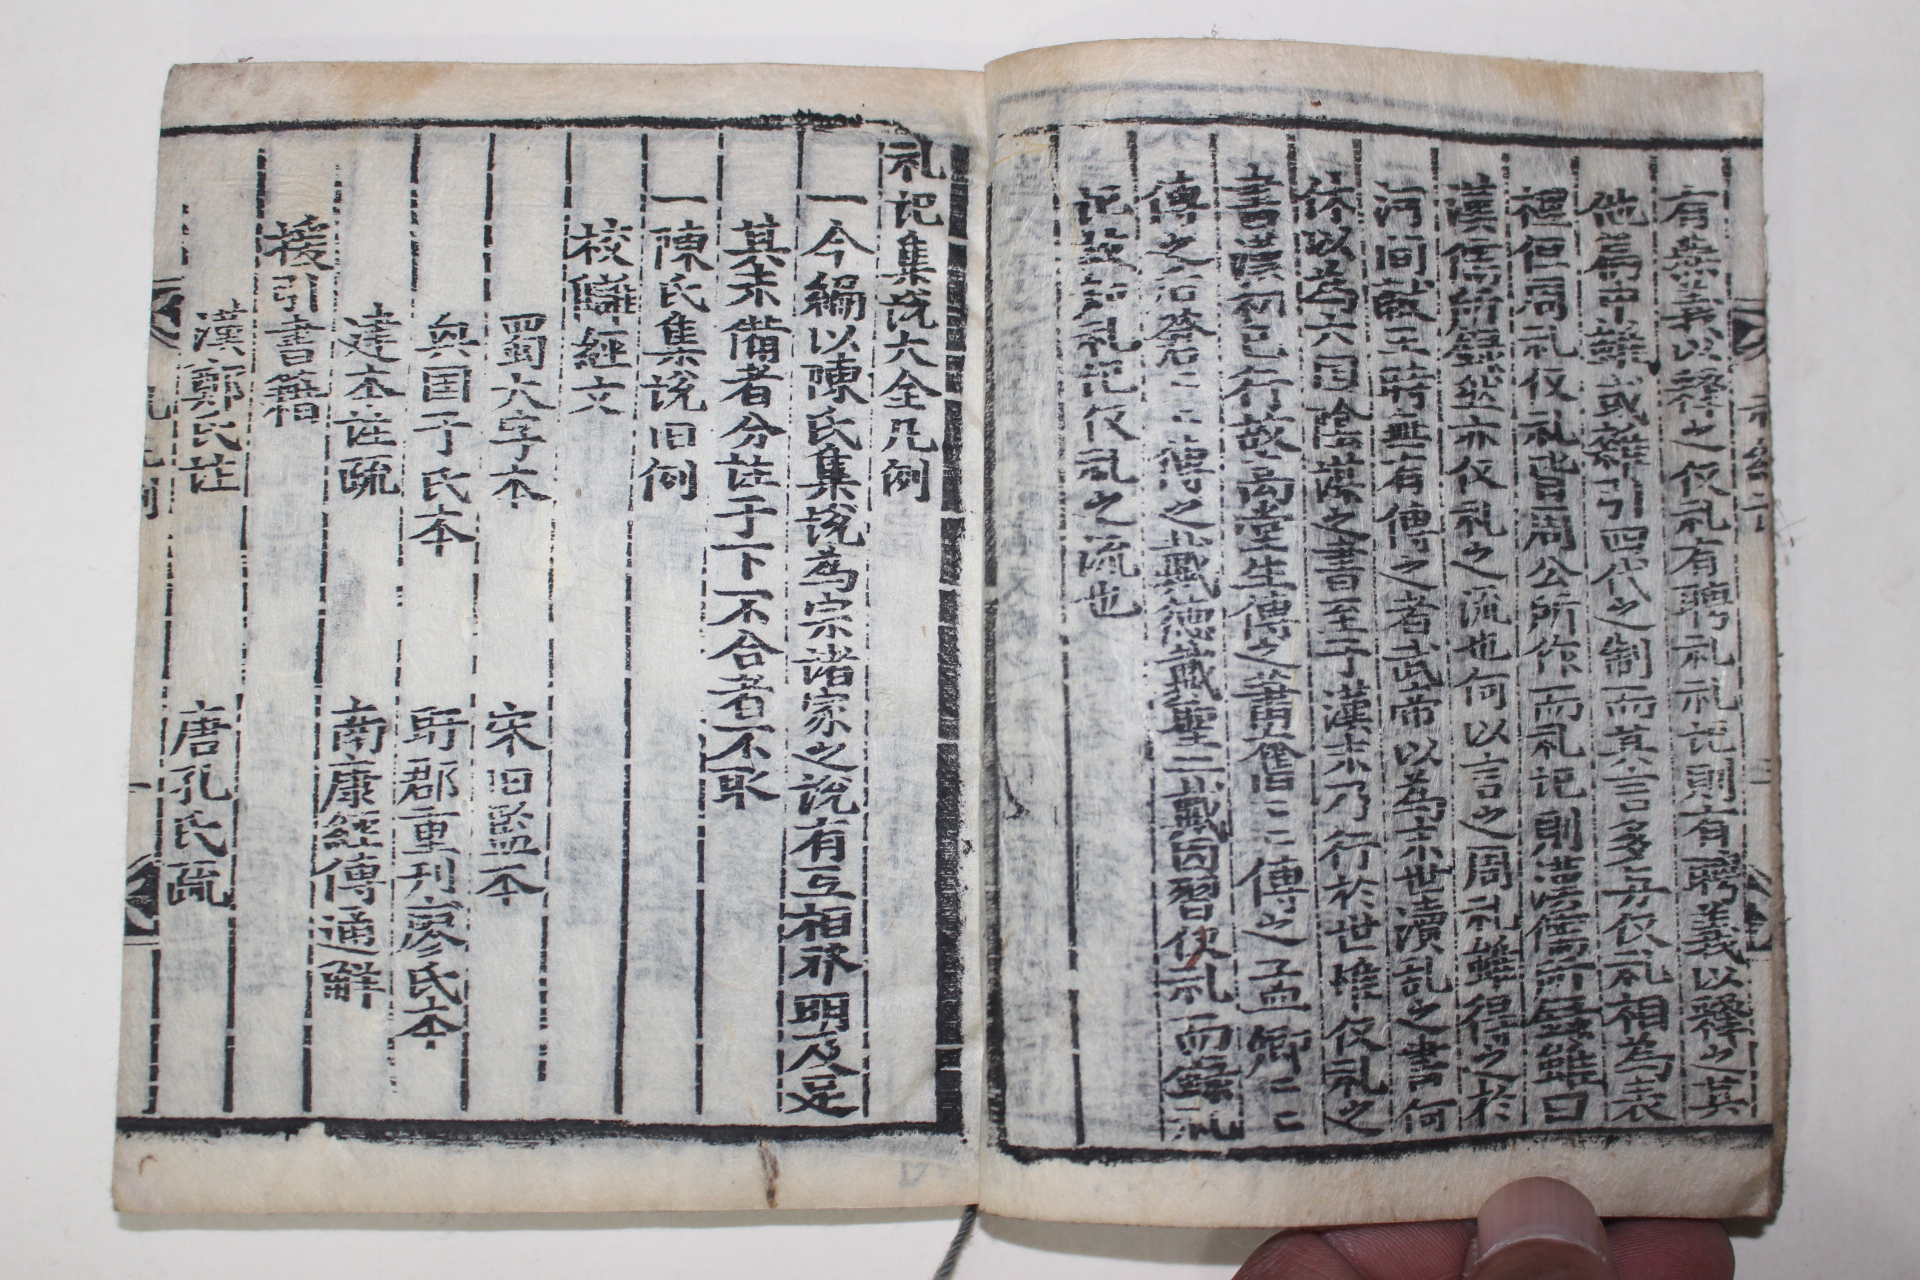 有燕義以釋之仪礼有聘礼礼記則有聘義以釋之其
他篇中雖或雜引四代之制而其言多与仪礼相為表
裡但周礼仪礼皆周公所作而礼記則漢儒所录雖曰
漢儒所録然亦仪礼之流也何以言之周礼雖得之於
河间献王時無有傳之者武帝以為末世瀆乱之書何
休以為六国陰謀之書至于漢末乃行於世惟仪礼之
書漢初已行故高堂生傳之蕭奮〻傳之孟卿〻
傳之后蒼〻傳之戴德戴聖二戴因習仪礼而録礼
記故知礼记仪礼之流也
礼记集说大全凡例
一今編以陳氏集説為宗诸家之説有互相發明及足
其未備者分註于下不合者不取
一陳氏集説旧例
校讎經文
蜀大字本 宋旧監本
興国于氏本 盱郡重刊廖氏本
建本註疏 南康經傳通解
援引書籍
漢鄭氏註 唐孔氏疏